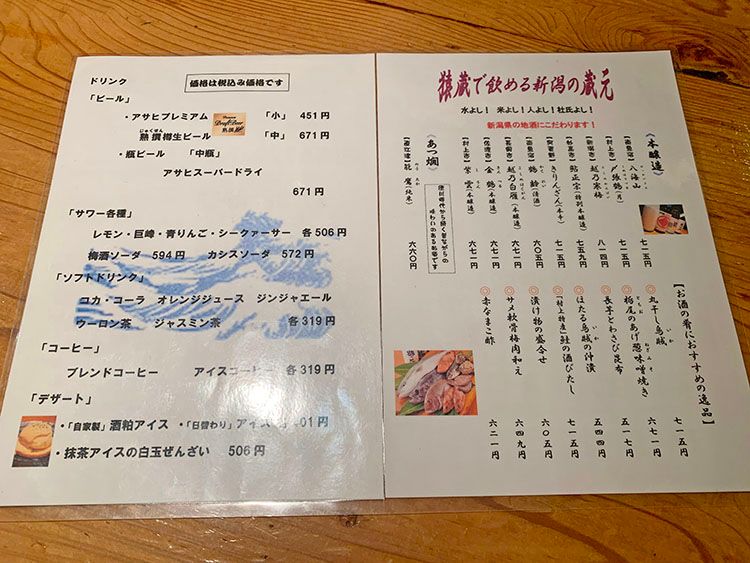 ドリンク
価格は税込み価格です
「ビール」
・アサヒプレミアム 「小」 451円
じゅくせん
熟撰樽生ビール 「中」 671円
・瓶ビール 「中瓶」
アサヒスーパードライ
671円
「サワー各種」
レモン・巨峰・青りんご・シークァーサー 各506円
梅酒ソーダ 594円 カシスソーダ 572円
「ソフトドリンク」
コカ・コーラ オレンジジュース ジンジャエール
ウーロン茶 ジャスミン茶 各319円
「コーヒー」
ブレンドコーヒー アイスコーヒー 各319円
「デザート」
・「自家製」酒粕アイス ・「日替わり」アイス
・抹茶アイスの白玉ぜんざい 506円
猿蔵で飲める新潟の蔵元
水よし! 米よし!人よし!杜氏よし!
新潟県の地酒にこだわります!
《本醸造》
【南魚沼】八海山 七一五
【村上市】〆張鶴(月) 七一五
【新潟市】越乃寒梅 八一四
【妙高市】鮎正宗(特別本醸造) 七五九
【阿賀町】きりんざん(辛口) 六七一
【南魚沼】鶴齢(清酒) 六〇五
越乃白雁(本醸造) 六七一
【佐渡市】金鶴(本醸造) 六七一
【村上市】紫雲(本醸造) 六七一
《あつ燗》
能鷹(純米) 六六〇
味わいのあるお酒です
【お酒の肴におすすめの逸品】
◎丸干し烏賊 七一五円
◎栃尾のあげ葱味噌焼き 六七一円
◎長芋とわさび昆布 五一七円
◎ほたる烏賊の沖漬 五四四円
◎「村上特産」鮭の酒びたし 七一五円
◎漬け物の盛合せ 六〇五円
◎サメ軟骨梅肉和え 六四九円
◎赤なまこ酢 六二一円